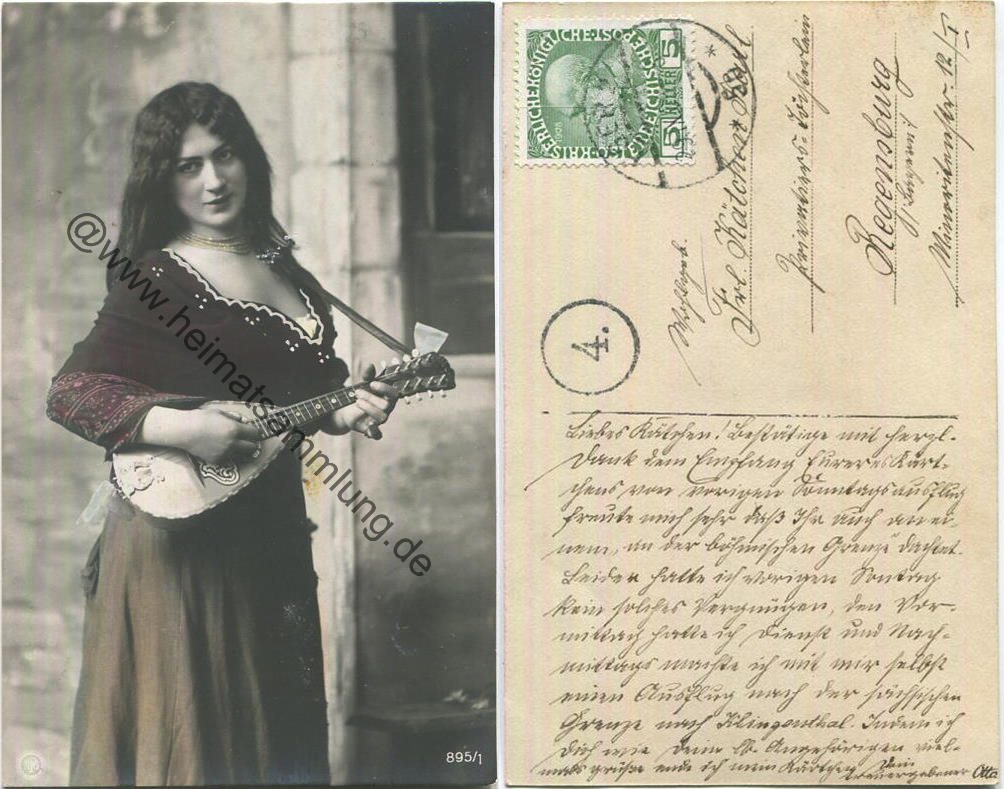 @www.heimatsammlung.de
895/1
NPG
KAISERLICHE·KÖNIGLICHE·
ÖSTERREICHISCHE·POST·
5 HELLER 5
1908
4.
Wohlgeb.
Frl. Kätchen
Privatiers-Töchterlein
Regensburg
Minoritenstr. 12/I
Liebes Kätchen! Bestätige mit herzl.
Dank dem Empfang Eures Kärt-
chens von vorigen Sonntagsausflug
freute mich sehr daß Ihr auch an ei-
nem, an der böhmischen Grenze dachtet.
Leider hatte ich vorigen Sontag
kein solches Vergnügen, den Vor-
mittach hatte ich Dienst und Nach-
mittags machte ich mit mir selbst
einen Ausflug nach der sächsischen
Grenze nach Klingenthal. Indem ich
Dich wie Deine lb. Angehörigen viel-
mals grüße ende ich mein Kärtchen Dein
treuergebener Otto